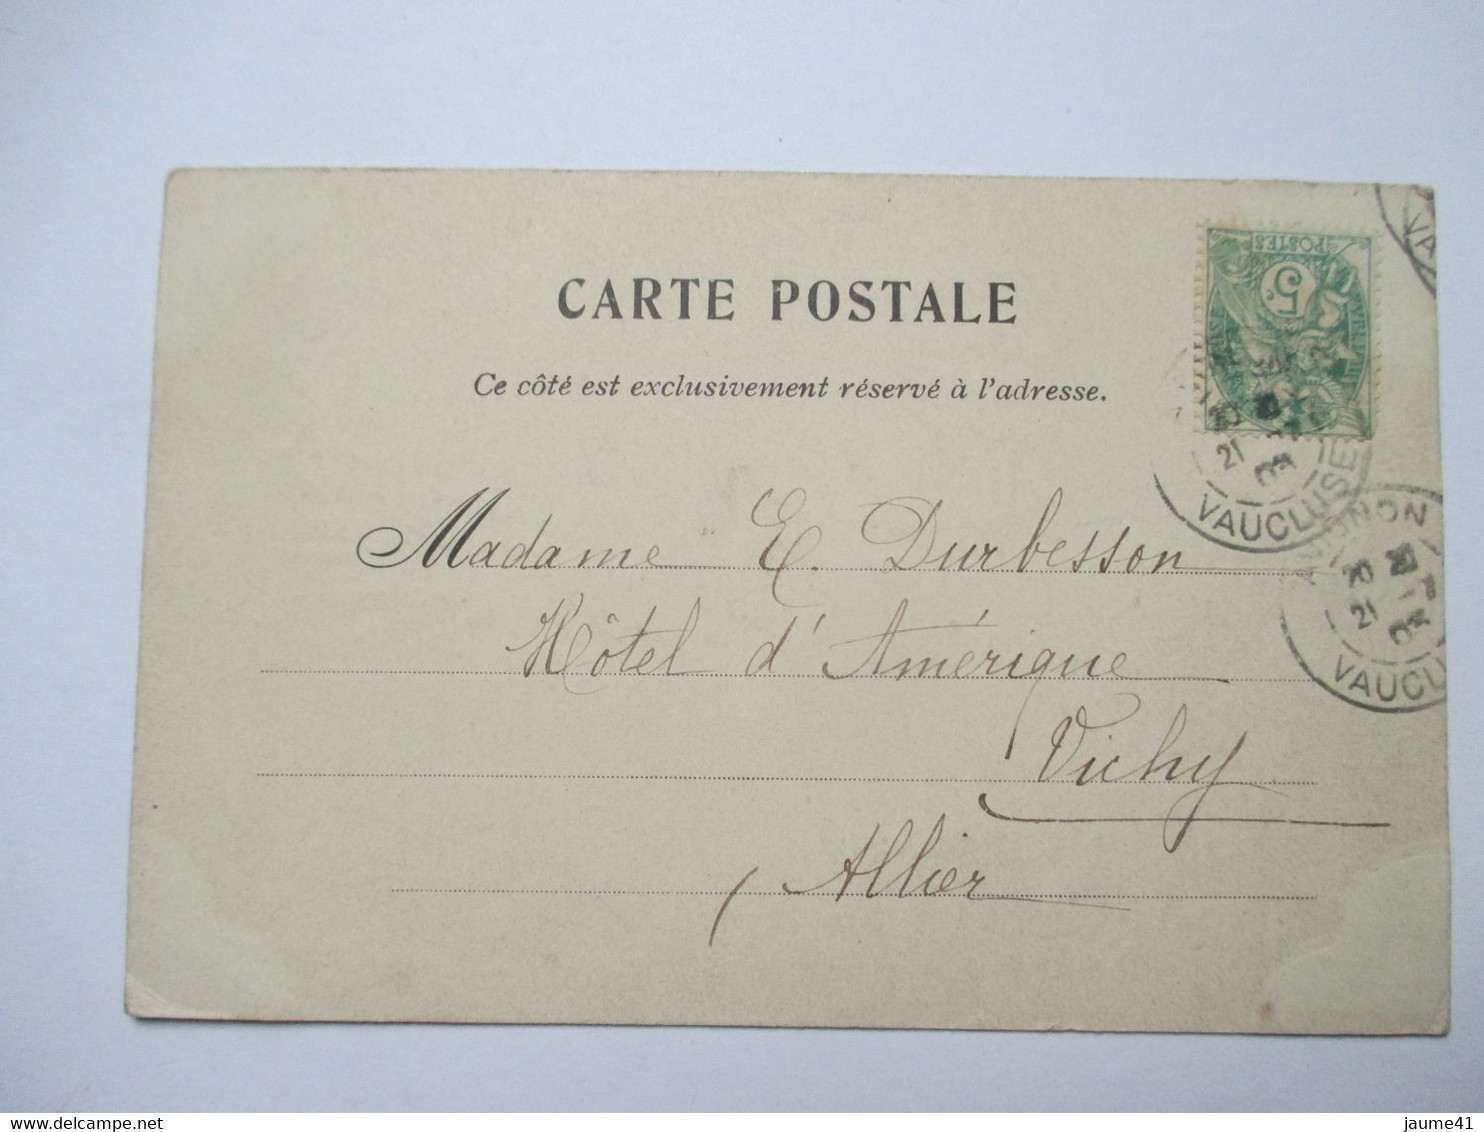 CARTE POSTALE
Ce côté est exclusivement réservé à l'adresse.
POSTES
5
Madame E. Durbesson
Hôtel d'Amérique
Vichy
Allier
VAUCLUSE
21
AVIGNON
20
21
VAUCLU
VA
delcampe.net
jaume41